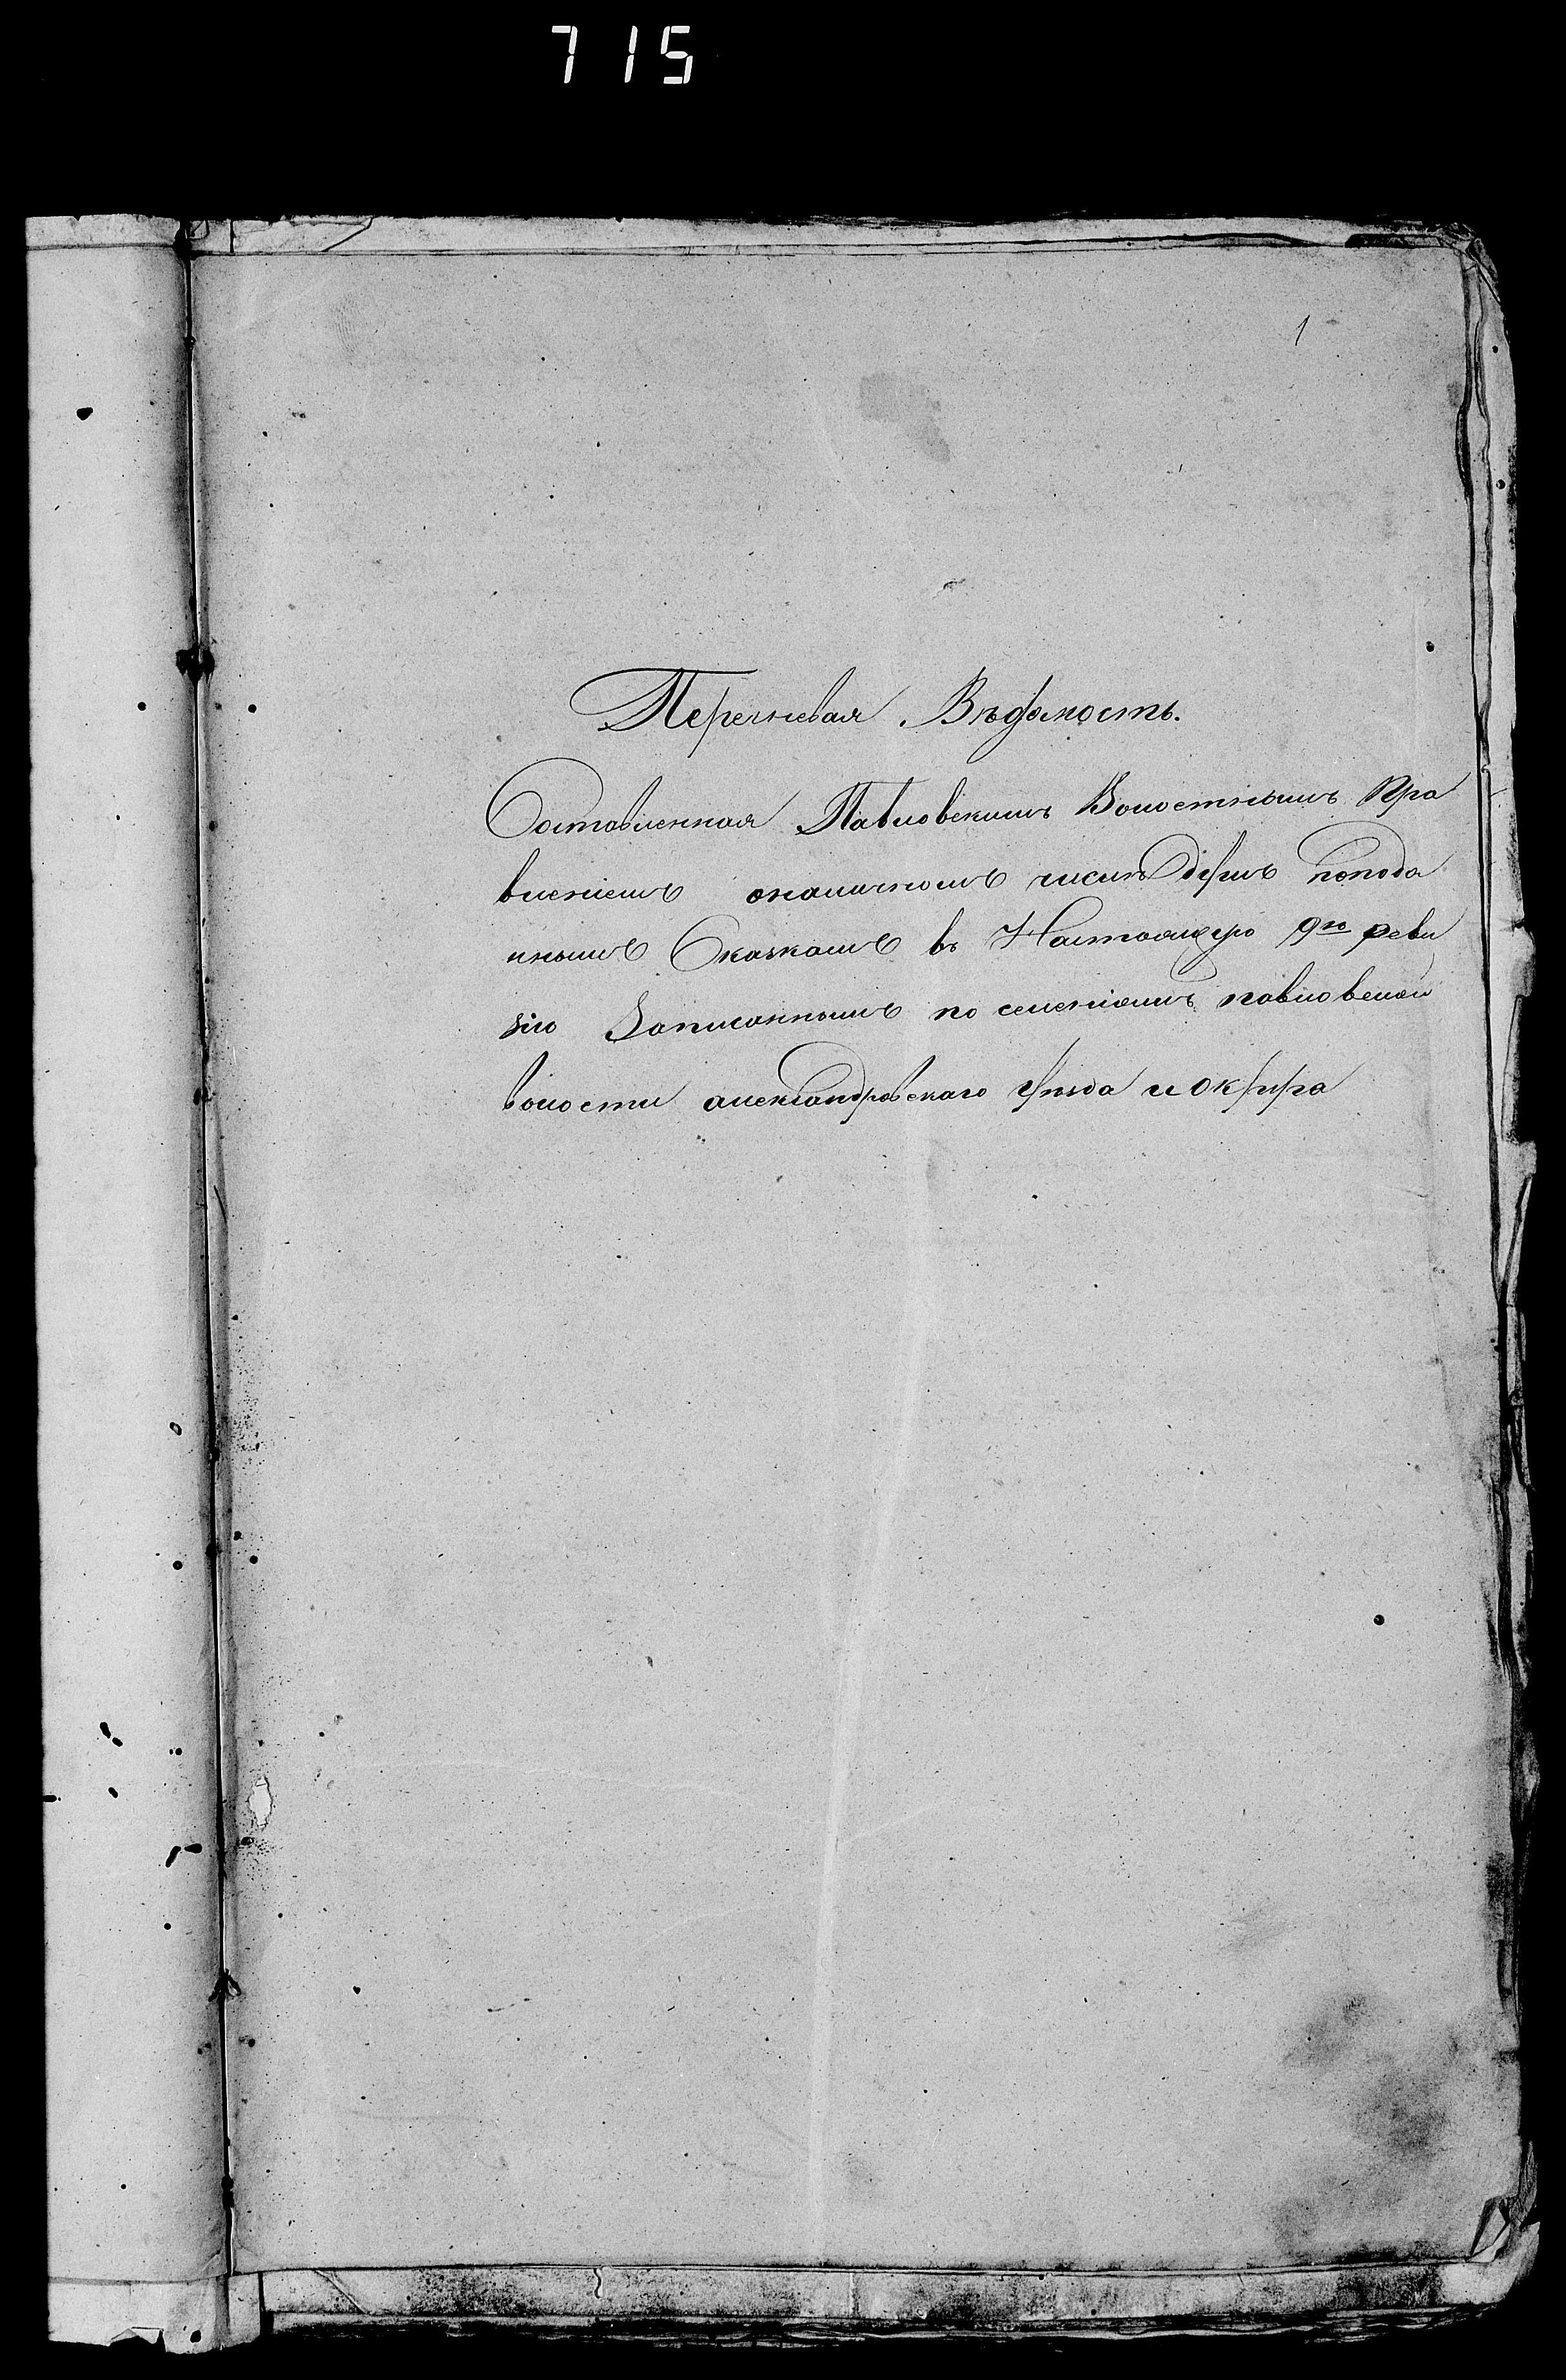 715
1
Перечневая Вѣдомость.
Составленная Павловскимъ Волостнымъ Пра
вленіемъ оналичномъ числѣ душъ попода
ннымъ Сказкамъ въ Настоящую 9ю реви
зію Записаннымъ по селеніямъ павловской
волости александровскаго уѣзда и округа